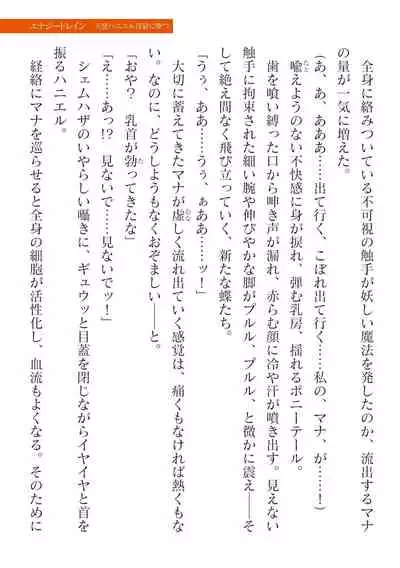 エナジードレイン　天使ハニエル淫獄に堕つ
全身に絡みついている不可視の触手が妖しい魔法を発したのか、流出するマナ
の量が一気に増えた。
（あ、あ、あああ……出て行く、こぼれ出て行く……私の、マナ、が……！）
喩えようのない不快感に身が捩れ、弾む乳房、揺れるポニーテール。
歯を食い縛った口から呻き声が漏れ、赤らむ顔に冷や汗が噴き出す。見えない
触手に拘束された細い腕や伸びやかな脚がプルル、プルル、と微かに震え――そ
して絶え間なく飛び立っていく、新たな蝶たち。
「うぅ、ああ……うぅ、ぁああ……ッ！」
大切に蓄えてきたマナが虚しく流れ出ていく感覚は、痛くもなければ熱くもな
い。なのに、どうしようもなくおぞましい――と。
「おや？　乳首が勃ってきたな」
「え……あっ!?　見ないで……見ないでッ！」
シェムハザのいやらしい囁きに、ギュウッと目蓋を閉じながらイヤイヤと首を
振るハニエル。
経絡にマナを巡らせると全身の細胞が活性化し、血流もよくなる。そのために